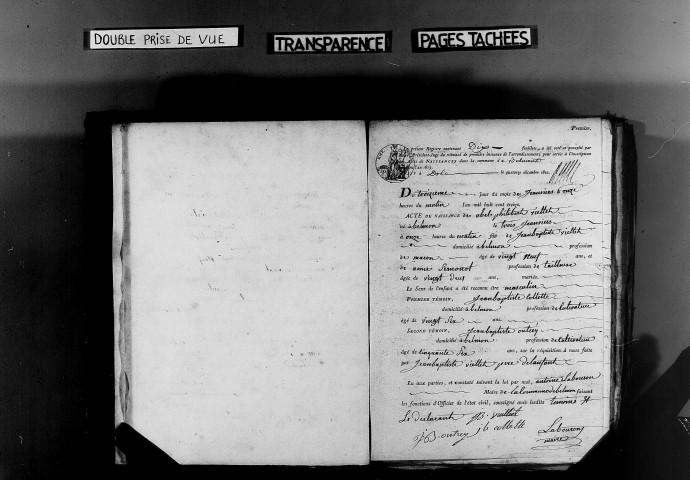 DOUBLE PRISE DE VUE
TRANSPARENCE
PAGES TACHEES
Premier.
Le présent Registre contenant Dix feuillets, a été coté et paraphé par
Président-Juge du tribunal de première instance de l'arrondissement, pour servir à l'inscription
Actes de NAISSANCES dans la commune de Belmont
à Dole le quatorze décembre 1812.
Du troizieme jour du mois de Janvier à onze
heures du matin l'an mil huit cent treize.
ACTE DE NAISSANCE de abel philibert viellet
né à belmon le trois janvier
à onze heures du matin fils de Jeanbaptiste viellet
domicilié à belmon profession
de masson âgé de vingt neuf ans, et
de anne profession de tailleuse
âgée de vingt deux ans, mariés.
Le Sexe de l'enfant a été reconnu être masculin
PREMIER TÉMOIN, Jeanbaptiste collette
domicilié à belmon profession de cultivateur
âgé de vingt six ans
SECOND TÉMOIN, Jeanbaptiste outrey
domicilié à belmon profession de cultivateur
âgé de cinquante six ans, sur la réquisition à nous faite
par Jeanbaptiste viellet pere de lanfant
Lu aux parties, et constaté suivant la loi par moi, antoine Labouron
Maire de la commune de belmon faisant
les fonctions d'Officier de l'état civil, soussigné avec lesdits temoins et
Le declarant JB. viellet
JB outrey jb collette Labouron
maire